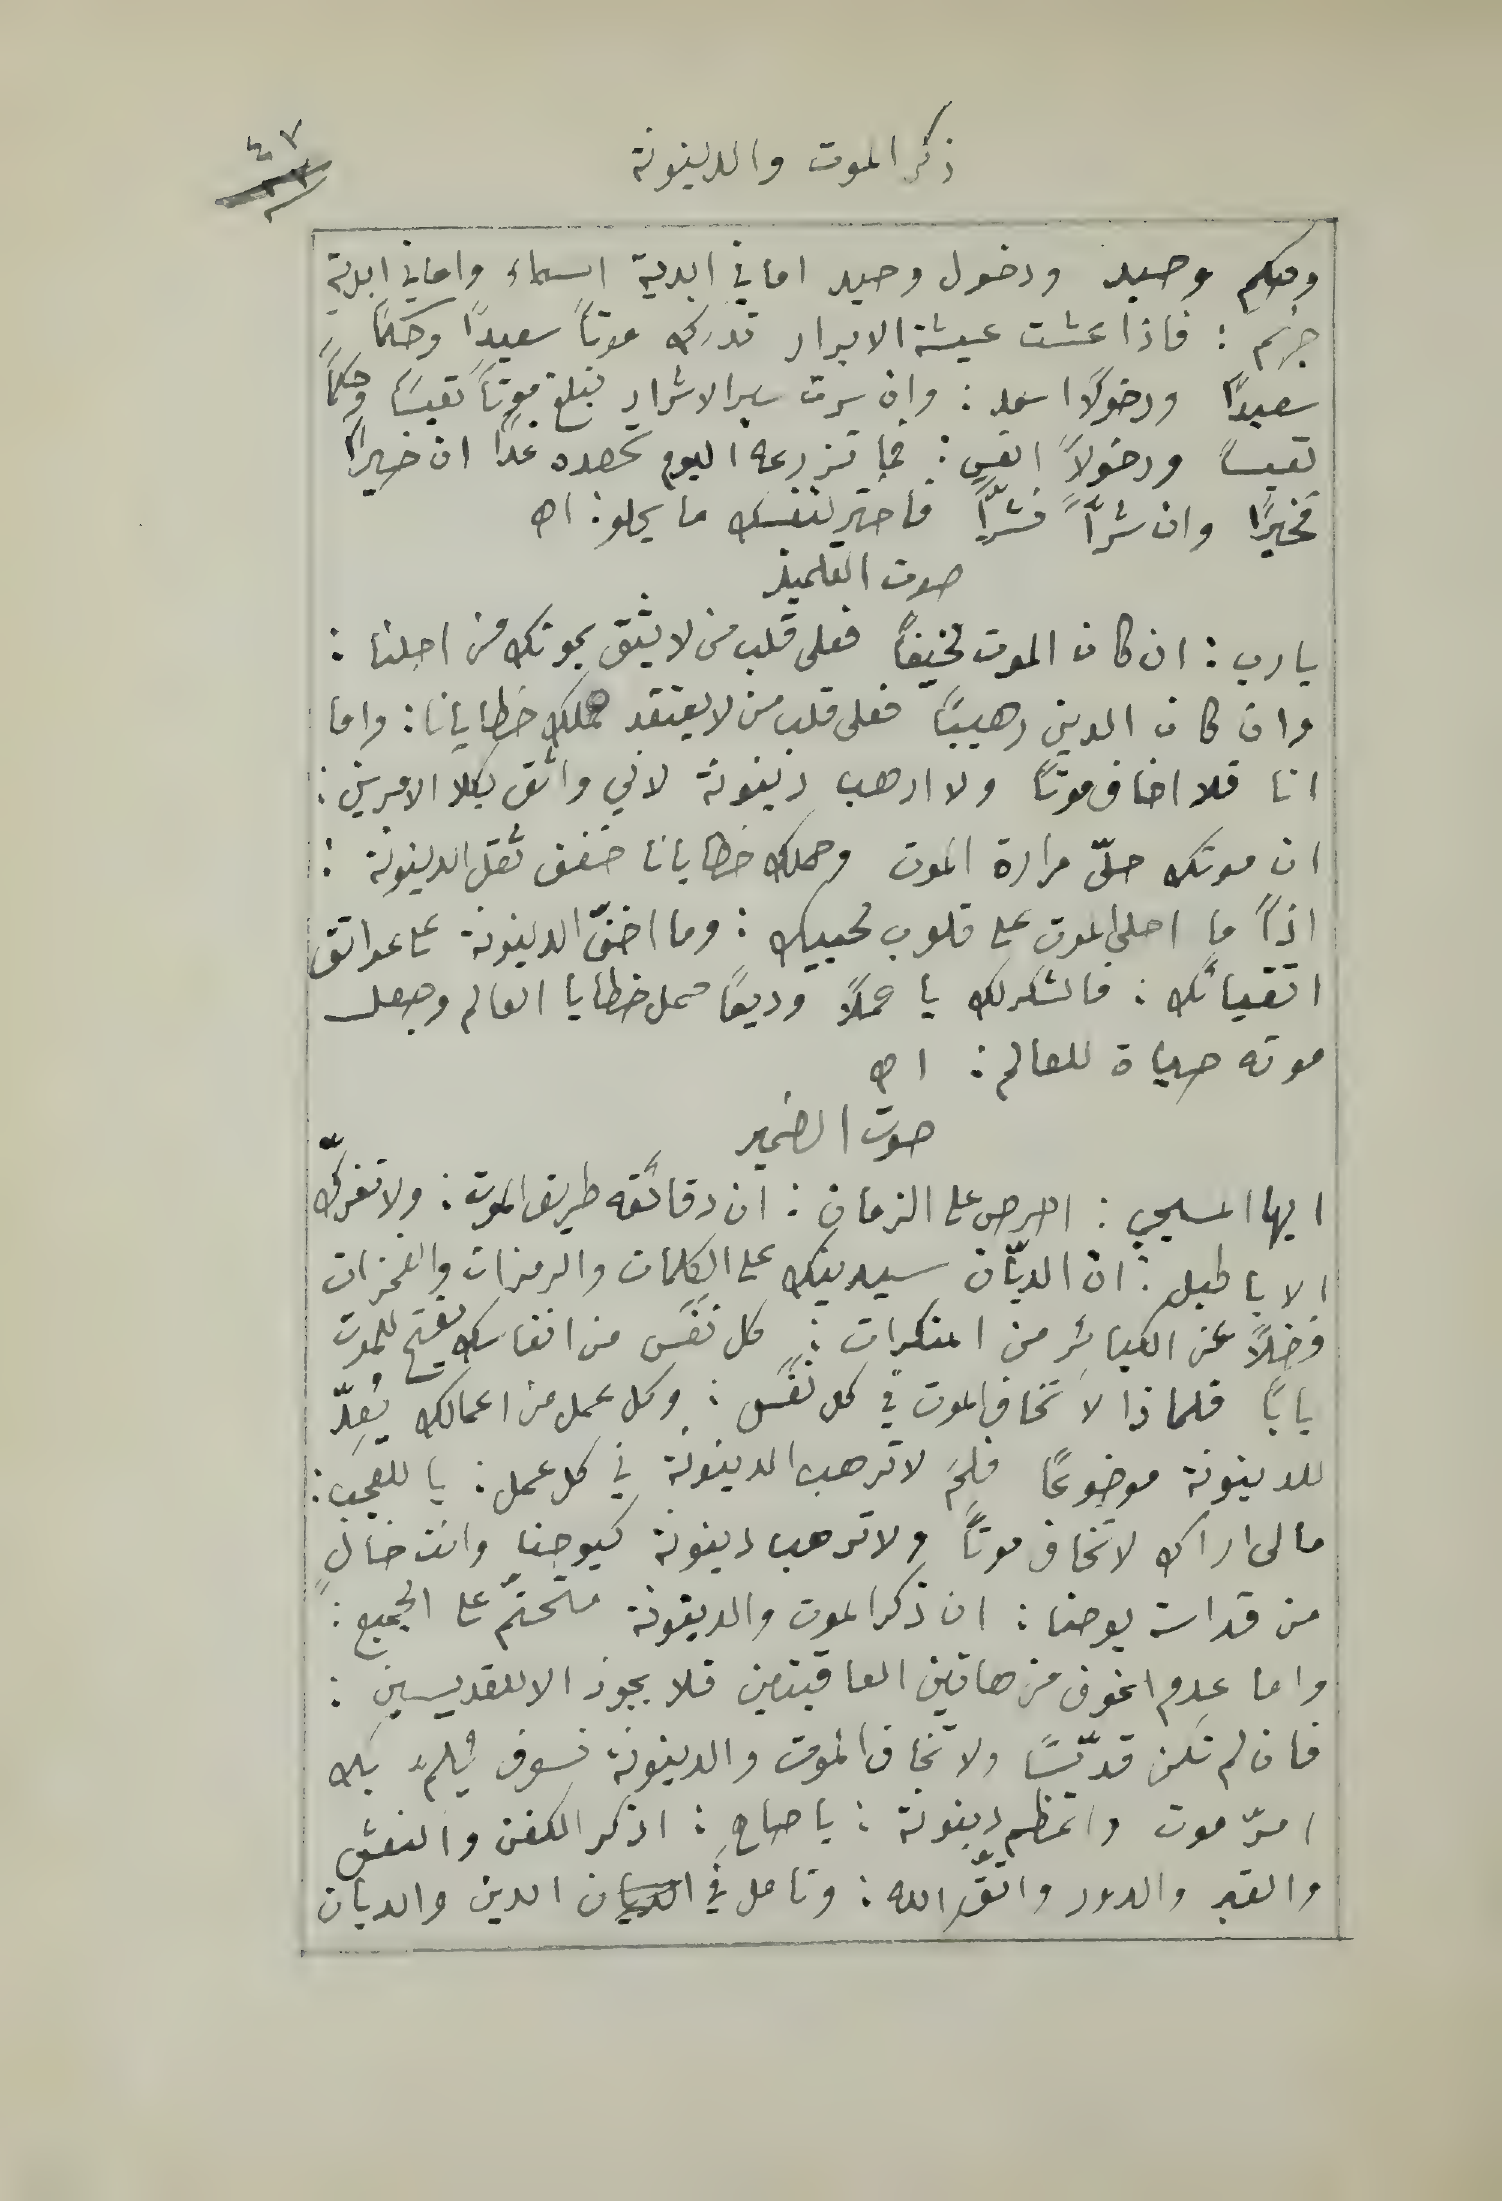 ذكر الموت والدينونة
٤٧
وحكم وحيد ودخول وحيد اما في ابدية السماء واما في ابدية
جهنم : فاذا عشت عيشة الابرار تدرك موتاً سعيدًا وحكمًا
سعيدًا ودخولًا اسعد : وان سرت سير الاشرار تبلغ موتاً تعيسًا وحكمًا
تعيسًا ودخولاً اتعس : فما تزرعه اليوم تحصده غدًا ان خيرًا
فخيرًا وان شرًّا فشرًّا فاختر لنفسك ما يحلو : اه
صوت التلميذ
يا رب : ان كان الموت مخيفاً فعلى قلب من لا يثق بموتك من اجلنا :
وان كان الدين رهيبًا فعلى قلب من لا يعتقد حملك خطايانا : واما
انا فلا اخاف موتاً ولا ارهب دينونة لاني واثق بكلا الامرين :
ان موتك حلّى مرارة الموت وحملك خطايانا خفف ثقل الدينونة :
اذاً ما احلى الموت على قلوب محبيك : وما اخفّ الدينونة على عواتق
اتقيائك : فالشكر لك يا حملاً وديعًا حمل خطايا العالم وجعل
موته حياة للعالم : اه
صوت الضمير
ايها المسيحي : احرص على الزمان : ان دقائقه طريق الموت : ولا تغرنّك
الاباطيل : ان الديّان سيدينك على الكلمات والرمزات والغمزات
فضلاً عن الكبائر من المنكرات : كل نَفَس من انفاسك يفتح للموت
بابًا فلماذا لا تخاف الموت في كل نَفَس : وكل عمل من اعمالك يُعِدّ
للدينونة موضوعًا فلِمَ لا ترهب الدينونة في كل عمل : يا للعجب :
مالي اراك لا تخاف موتاً ولا ترهب دينونة كيوحنا وانت خالٍ
من قداسة يوحنا : ان ذكر الموت والدينونة متحتمٌ على الجميع :
واما عدم الخوف من هاتين العاقبتين فلا يجوز الا للقديسين :
فان لم تكن قديّسًا ولا تخاف الموت والدينونة فسوف يُلِمّ بك
امرّ موت واعظم دينونة : يا صاحِ : اذكر الكفن والنعش
والقبر والدود واتَّقِ الله : وتامل في الدين والديان